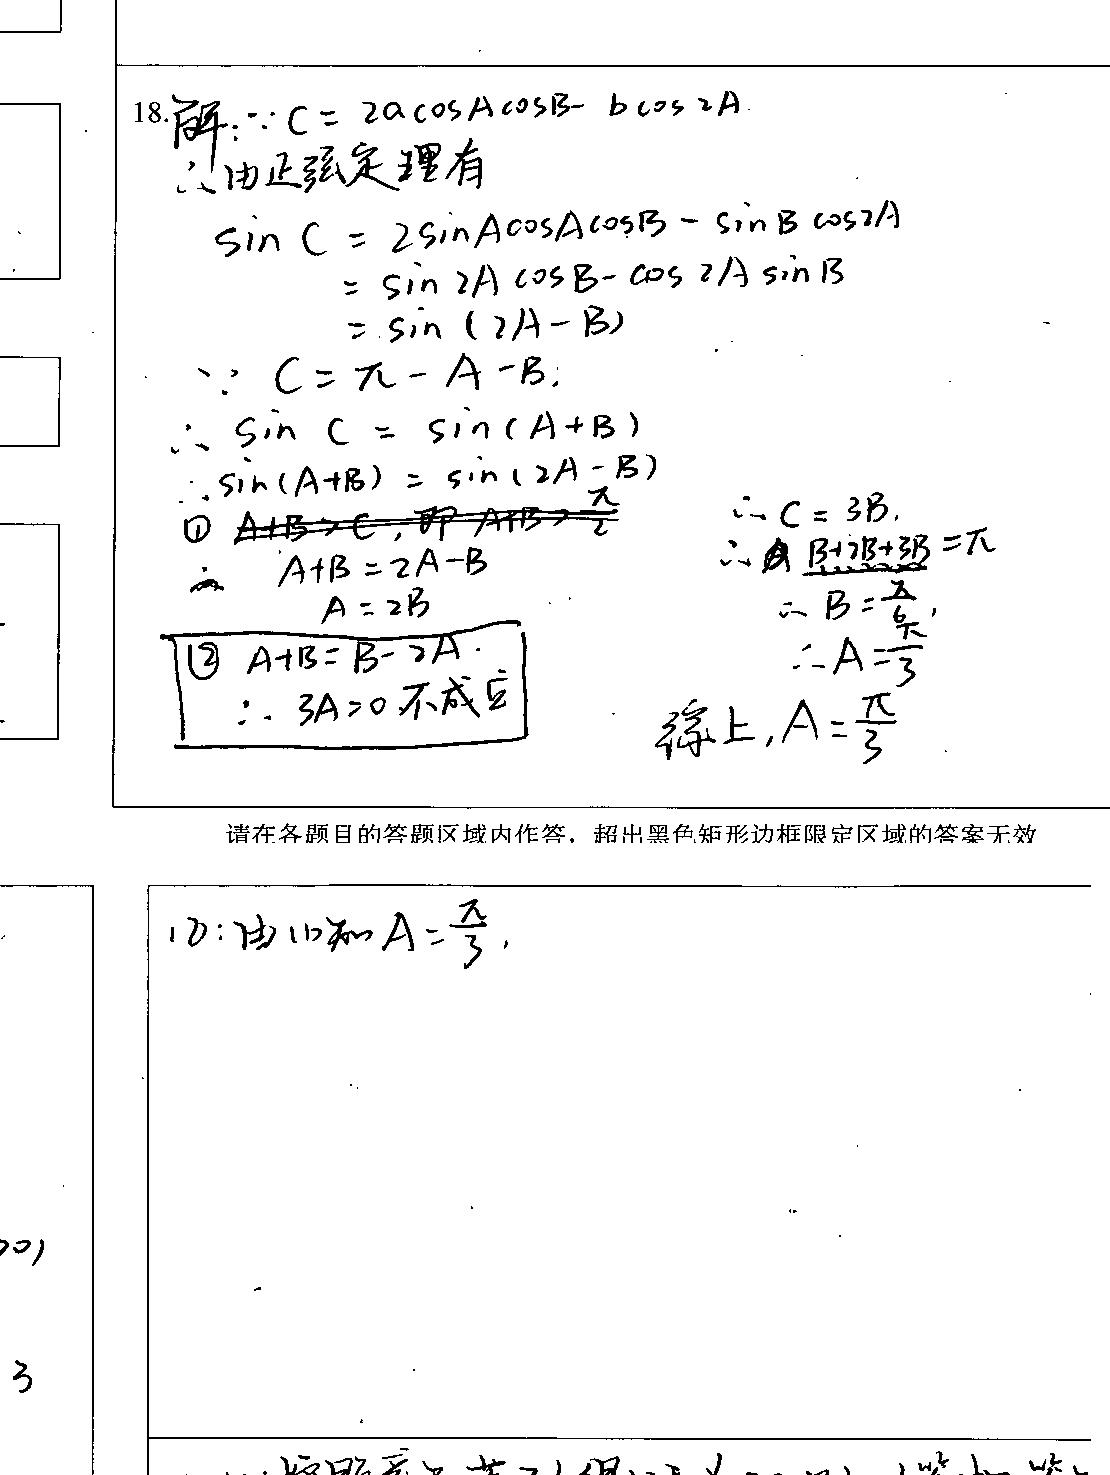 18.解:∵C=2acosAcosB-bcos2A
∴由正弦定理有
sinC=2sinAcosAcosB-sinBcos2A
=sin2AcosB-cos2AsinB
=sin(2A-B)
∵C=π-A-B.
∴sinC=sin(A+B)
∴sin(A+B)=sin(2A-B)
① A+B>C,即A+B>π/2
∴A+B=2A-B
A=2B
② A+B=B-2A.
∴3A=0不成立
∴C=3B.
∴B+2B+3B=π
∴B=π/6,
∴A=π/3
综上,A=π/3
请在各题目的答题区域内作答，超出黑色矩形边框限定区域的答案无效
12):由(1)知A=π/3,
001
3